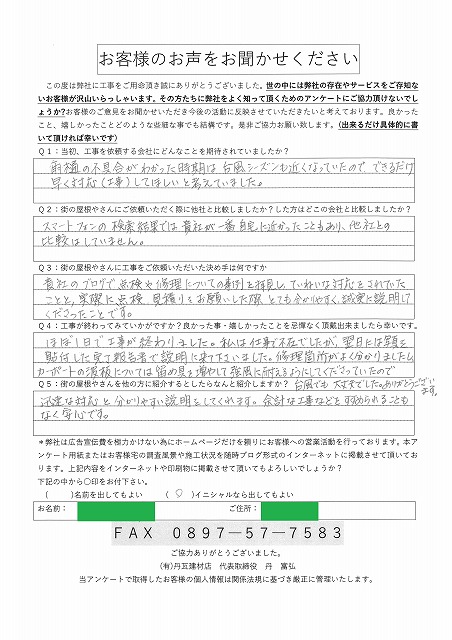 お客様のお声をお聞かせください
この度は弊社に工事をご用命頂き誠にありがとうございました。世の中には弊社の存在やサービスをご存知な
いお客様が沢山いらっしゃいます。その方たちに弊社をよく知って頂くためのアンケートにご協力頂けないでし
ょうか?お客様のご意見をお聞かせいただき今後の活動に反映させていただきたいと考えております。良かった
こと、嬉しかったことどのような些細な事でも結構です。是非ご協力お願い致します。(出来るだけ具体的に書
いて頂ければ幸いです)
Q1:当初、工事を依頼する会社にどんなことを期待されていましたか?
雨樋の不具合がわかった時期は台風シーズンも近くなっていたので できるだけ
早く対応(工事)してほしいと考えていました。
Q2:街の屋根やさんにご依頼いただく際に他社と比較しましたか?した方はどこの会社と比較しましたか?
スマートフォンの検索結果では貴社が一番自宅に近かったこともあり、他社との
比較はしていません。
Q3:街の屋根やさんに工事をご依頼いただいた決め手は何ですか
貴社のブログで点検や修理についての事例を拝見し、ていねいな対応をされていた
ことと、実際に点検、見積りをお願いした際、とても分かりやすく、誠実に説明して
くださったことです。
Q4:工事が終わってみていかがですか?良かった事・嬉しかったことを忌憚なく頂戴出来ましたら幸いです。
ほぼ1日で工事が終わりました。私は仕事で不在でしたが、翌日に写真を
貼付した完了報告書で説明に来て下さいました。修理箇所がよく分かりましたし、
カーポートの波板については留め具を増やして強風に耐えるようにしてくださっていたので
台風でも大丈夫でした。ありがとうござい
ます。
Q5:街の屋根やさんを他の方に紹介するとしたらなんと紹介しますか?
迅速な対応と分かりやすい説明をしてくれます。余計な工事などをすすめられることも
なく安心です。
*弊社は広告宣伝費を極力かけない為にホームページだけを頼りにお客様への営業活動を行っております。本ア
ンケート用紙またはお客様宅の調査風景や施工状況を随時ブログ形式のインターネットに掲載させて頂いてお
ります。上記内容をインターネットや印刷物に掲載させて頂いてもよろしいでしょうか?
下記の中から〇印をお付下さい。
( )名前を出してもよい ( ○ )イニシャルなら出してもよい
お名前: ご住所:
FAX 0897-57-7583
ご協力ありがとうございました。
(有)丹瓦建材店 代表取締役 丹 富弘
当アンケートで取得したお客様の個人情報は関係法規に基づき厳正に管理いたします。